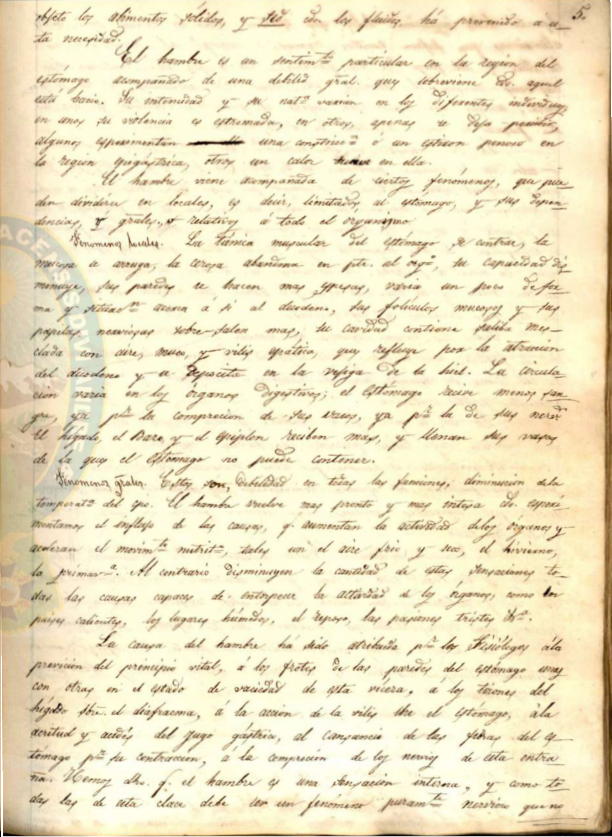 5.
objeto los alimentos sólidos, y sed con los fluidos, há prevenido a es_
ta necesidad.
El hambre es un sentim.to particular en la region del
estómago acompañado de una debilid gral. que sobreviene do. aquel
está bacio. Su intensidad y su nat.a varian en los diferentes individuos,
en unos su violencia es estremada, en otros, apenas se deja percibir,
algunos esperimentan una constricc.n ó un estiron penoso en
la region epigástrica, otros un calor en ella.
El hambre viene acompañada de ciertos fenómenos, que pue_
den dividirse en locales, es decir, limitados al estómago, y sus depen_
dencias, y grales., relativos á todo el organismo
Fenomenos locales. La túnica muscular del estómago se contrae, la
mucosa se arruga, la cerosa abandona en pte. al org.o, su capacidad dis_
minuye, sus paredes se hacen mas espesas, varia un poco de for_
ma y situac.n acerca á si al duodeno, sus folículos mucosos y sus
papilas nerviosas sobre-salen mas, su cavidad contiene saliva mes_
clada con aire, muco, y vilis epática, que refluye por la atraccion
del duodeno y se deposita en la vejiga de la hiel. La circula_
cion varia en los órganos digestivos; el estómago recive menos san_
gre ya p.r la comprecion de sus vasos, ya p.r la de sus nerv.s
El hígado, el Bazo, y el epiplon reciben mas, y llenan sus vasos
de la que el estómago no puede contener.
Fenomenos grales. Estos son, debilidad en todas las funciones, diminucion de la
temperat.a del cpo. El hambre vuelve mas pronto y mas intesa do. esperi_
mentamos el influjo de las causas, q. aumentan la actividad de los órganos y
aceleran el movim.to nutrit.o, tales son el aire frio y seco, el hivierno,
la primav.a. Al contrario disminuyen la cantidad de estas sensaciones to_
das las causas capaces de entorpecer la actividad de los órganos, como los
paises calientes, los lugares húmedos, el reposo, las pasiones tristes &.a
La causa del hambre há sido atribuida p.r los Fisiólogos á la
previcion del principio vital, á los frotes de las paredes del estómago unas
con otras en el estado de vaciedad de esta vicera, á los tirones del
hígado sbre. el diafracma, á la accion de la vilis sbre el estómago, á la
acritud y acidés del jugo gástrico, al cansancio de las fibras del es_
tómago p.r su contraccion, á la comprecion de los nervios de esta entra_
ña. Hemos dho. q. el hambre es una sensacion interna, y como to_
das las de esta clace debe ser un fenómeno puram.te nervioso que no